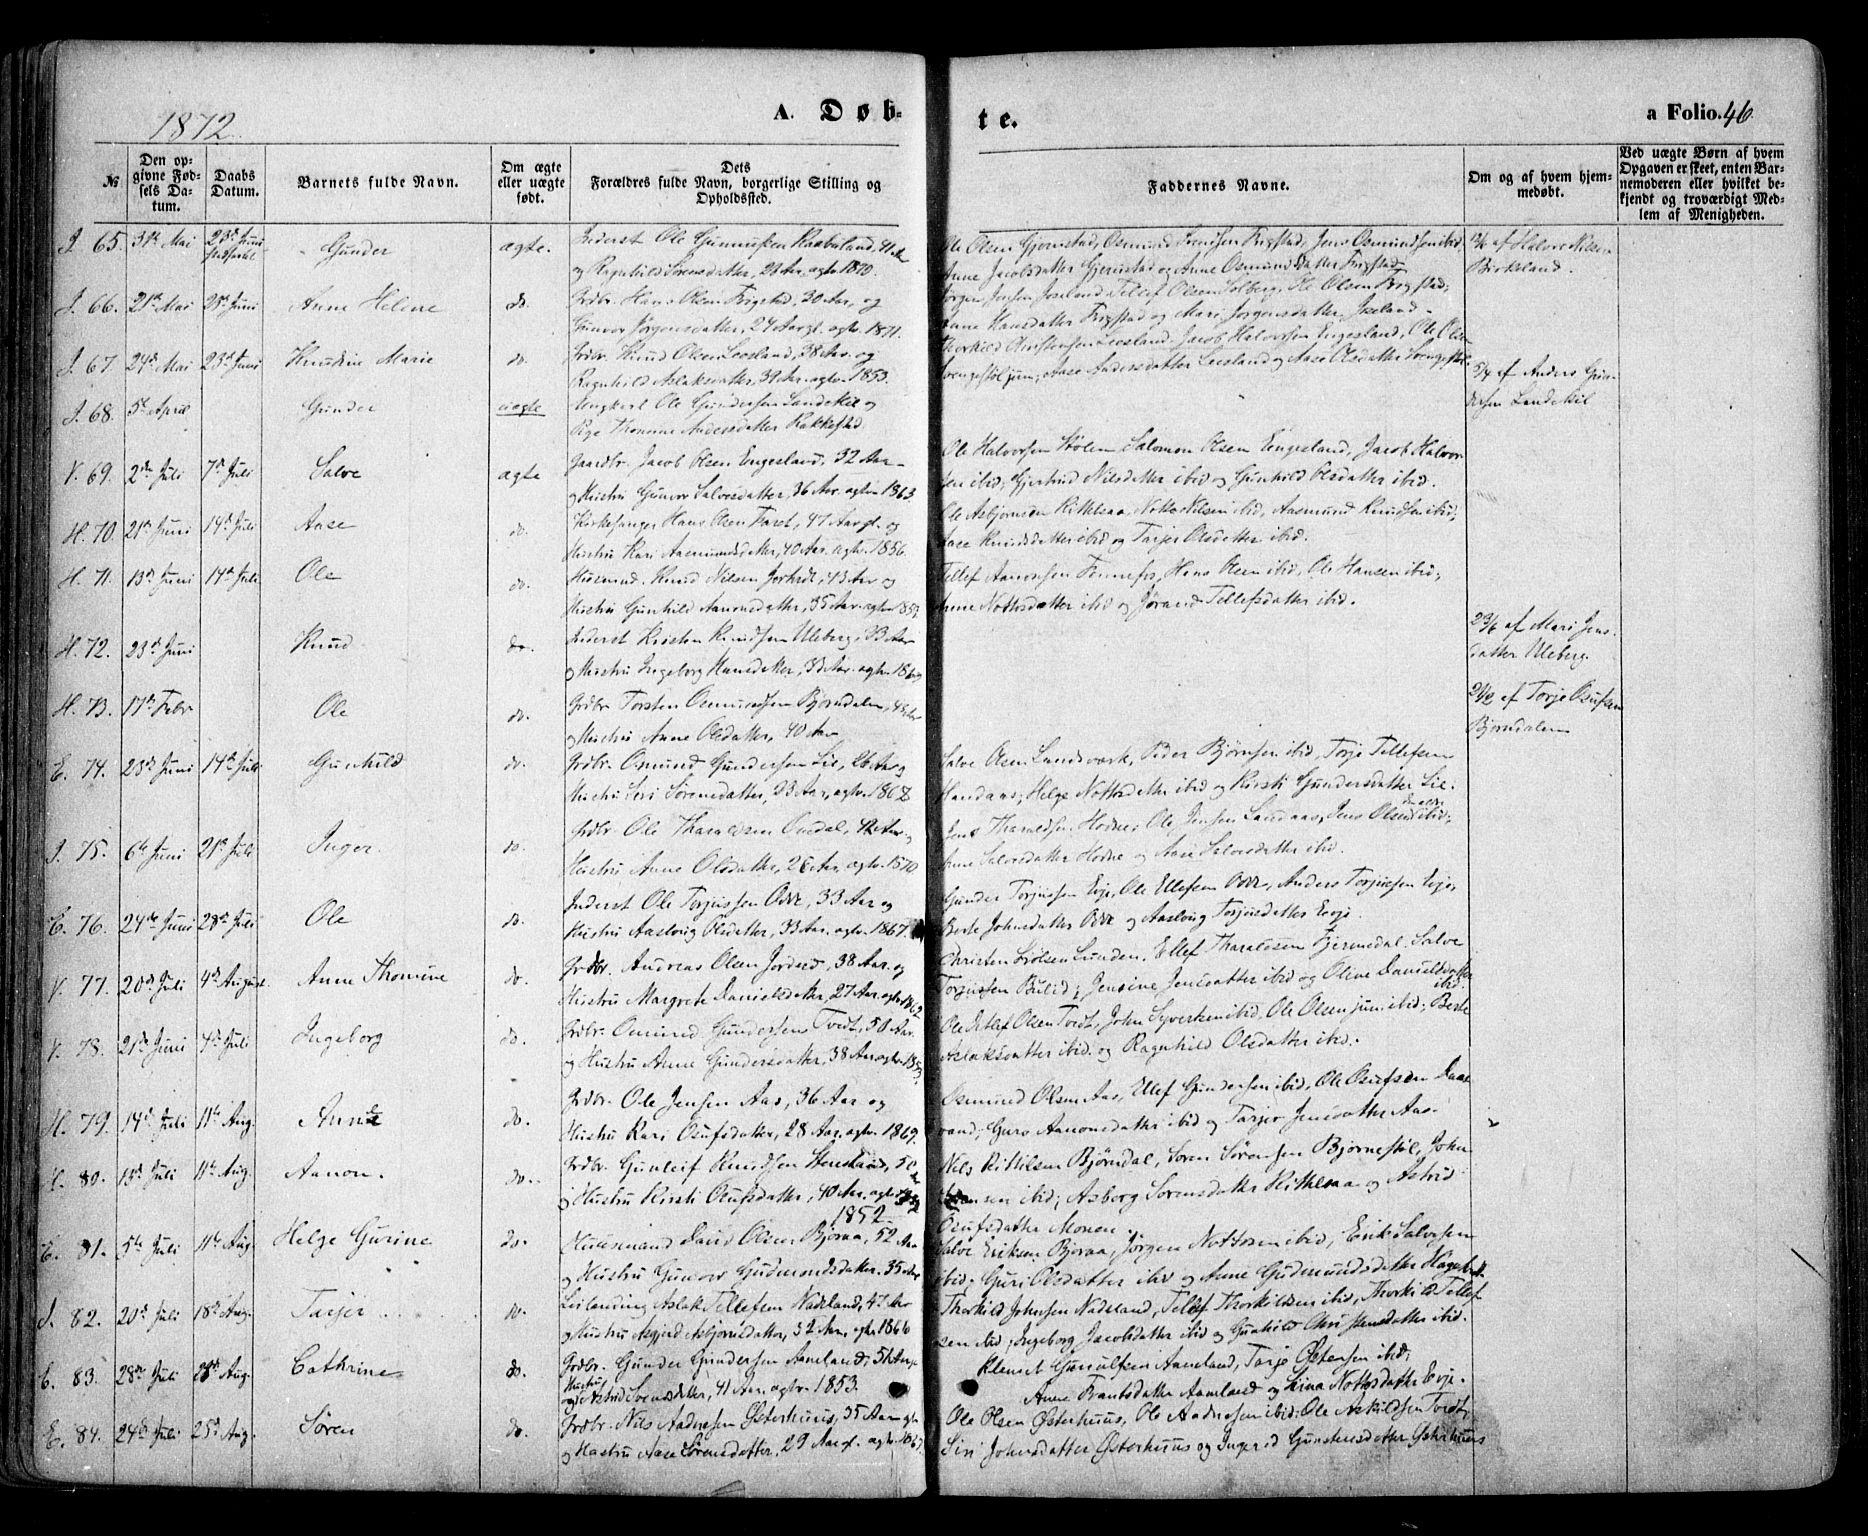 1872.
A. Døb-
te.
a Folio. 46
№
Den opgivne Fødsels Datum.
Daabs Datum.
Barnets fulde Navn.
Om ægte eller uægte født.
Dets Forældres fulde Navn, borgerlige Stilling og Opholdssted.
Faddernes Navne.
Om og af hvem hjemmedøbt.
Ved uægte Børn af hvem Opgaven er skeet, enten Barnemoderen eller hvilket bekjendt og troværdigt Medlem af Menigheden.
I. 65. 31te Mai 23de Juni Gunder ægte. Inderst Ole Gunnufsen Raabuland
og Ragnhild Sørensdatter, 23 Aar, agtv. 1870.
Ole Olsen Gjerustad, Osmund Frigstad, Jens Osmundsen ibid,
Anne Jacobsdatter Gjerustad og Anne Osmundsdatter Frigstad
af Halvor Nilsen Birkeland.
I. 66. 21de Mai 23de Juni Anne Helene do. Grdbr. Hans Olsen Frigstad, 30 Aar, og
Gunvor Jørgensdatter, 24 Aar gl. agtv. 1871.
Jørgen Joseland, Tellef Olsen Solberg, Ole Olsen Frigstad;
Anne Hansdatter Frigstad og Mari Jørgensdatter Joseland.
I. 67. 24de Mai 23de Juni Knudine Marie do. Grdbr. Knud Olsen Leesland, 38 Aar og
Ragnhild Aslaksdatter, 39 Aar, agtv. 1853.
Thorkild Christensen Leesland, Jacob Halvorsen Engesland, Ole Olsen
jun; Aase Andersdatter Leesland og Aase Olsdatter
I. 68. 5te April Gunder uægte Ungkarl Ole Gundersen Landekil og
Pige Thomine Andersdatter Rakkestad.
5/4 af Anders Gundersen Landekil
V. 69. 2den Juli 7de Juli Salve ægte Gaardbr. Jacob Olsen Engesland, 32 Aar
og Hustru Gunvor Salvesdatter, 36 Aar, agtv. 1863
Ole Halvorsen Stølen, Salomon Olsen Engesland, Jacob Halvorsen
ibid; Gjertrud Nilsdatter ibid og Gunhild Olsdatter ibid.
H. 70. 21de Juni 14de Juli Aase do. Kirkesanger Hans Olsen Faret, 47 Aar gl. og
Hustru Kari Aasmundsdatter, 40 Aar, agtv. 1856.
Ole Asbjørnsen Rettelsaa, Notto Nilsen ibid, Aasmund Knudsen ibid;
Aase Knudsdatter ibid og Tarjer Olsdatter ibid.
H. 71. 13de Juni 14de Juli Ole do. Husmd. Knud Nilsen, 43 Aar og
Hustru Gunhild Aanonsdatter, 35 Aar, agtv.
Tellef Aanonsen Fennefos, Hans Olsen ibid, Ole Hansen ibid;
Anne Nottosdatter ibid og Jørand Tellefsdatter ibid.
H. 72. 23de Juni Knud do. Inderst Kristen Knudsen Uleberg, 33 Aar
og Hustru Ingeborg Hansdatter
23/6 af Mari Jensdatter Uleberg
H. 73. 17de Febr Ole do. Grdbr. Torsten Osmundsen Bjorndalen
og Hustru Anne Olsdatter, 40 Aar
af Torje Osufsen Bjorndalen
E. 74. 23de Juni 14de Juli Gunhild do. Grdbr. Osmund Gundersen Lie, 26 Aar og
Hustru Siri Sørensdatter, 23 Aar, agtv. 1868
Salve Olsen Landsverk, Peder Bjørnsen ibid, Torje Tellefsen
Helge Nottosdatter ibid og Kirsti Gundersdatter Lie.
I. 75. 6te Juni 21de Juli Inger. do. Grdbr. Ole Tharaldsen Omdal, 42 Aar og
Hustru Anne Olsdatter, 26 Aar, agtv. 1870
Jens Tharaldsen Hodne, Ole Jensen Landaas, Jens Olsen ibid;
Anne Salvesdatter Hodne og Aase Salvesdatter ibid.
E. 76. 24de Juni 28de Juli Ole do. Inderst Ole Torjussen Odde, 33 Aar og
Hustru Aaslaug Olsdatter, 33 Aar, agtv. 1867.
Gunder Torjussen Evje, Ole Ellefsen Odde, Anders Torjussen Evje;
Berte Johnsdatter Odde og Aaslaug Torjusdatter Evje.
V. 77. 20de Juli 4de August. Anne Thomine do. Grdbr. Andreas Olsen, 38 Aar og
Hustru Margrete Danielsdatter, 27 Aar, agtv. 1862
Christen Lunden, Ellef Tharaldsen Fjermedal, Salve
Torjussen Bulid; Jensine Jensdatter ibid og Oline Danielsdatter ibid
V. 78. 21de Juni 4de Juli Ingeborg do. Grdbr. Osmund Gundersen Tveit, 50 Aar
og Hustru Anne Gundersdatter, 38 Aar, agtv.
Ole Olsen Tveit, John Syvertsen ibid, Ole Olsen jun. ibid; Berte
Aslaksdatter ibid og Ragnhild Olsdatter ibid.
H. 79. 14de Juli 11te Aug. Anne do. Grdbr. Ole Jensen Aas, 36 Aar og
Hustru Kari Osufsdatter, 28 Aar, agtv. 1869.
Osmund Olsen Aas, Ellef Gundersen ibid, Ole Osufsen
Guro Aanonsdatter ibid og Tarjer Jensdatter Aas.
H. 80. 13de Juli 11te Aug. Aanon. do. Grdbr. Gunleif Knudsen
og Hustru Kirsti Osufsdatter, 40 Aar, agtv. 1852
Nils Kittilsen Bjørndal, Søren Sørensen Bjørnestøl, John
ibid; Asborg Sørensdatter og Astrid
Osufsdatter Monen.
E. 81. 5te Juli 11te Aug. Helge Gurine do. Husmand David Olsen Bjoraa, 52 Aar
og Hustru Gunvor Gudmundsdatter 35 Aar
Salve Eriksen Bjoraa, Jørgen Nottosen ibid, Erik Salvesen
ibid; Guri Olsdatter ibid og Anne Gudmundsdatter
I. 82. 20de Juli 18de Aug. Tarjer do. Leilænding Aslak Tellefsen Nadeland, 47 Aar
og Hustru Asgjerd Asbjørnsdatter, 32 Aar, agtv. 1866
Thorkild Johnsen Nadeland, Tellef Thorkildsen ibid, Thorkild Tellefsen
ibid; Ingeborg Jacobsdatter ibid og Gunhild Christensdatter ibid.
E. 83. 28de Juli 25de Aug. Cathrine do. Grdbr. Gunder Gundersen Aaneland, 51 Aar
Hustru Astrid Svensdatter, 41 Aar, agtv. 1853.
Klemet Gunulfsen Aaneland, Tarje Østensen ibid;
Anne Frantsdatter Aaneland og Sina Nottosdatter Evje.
E. 84. 24de Juli 25de Aug. Søren do. Grdbr. Nils Andresen Østerhuus, 35 Aar gl.
og Hustru Aase Sørensdatter, 29 Aar gl. agtv. 1867.
Ole Olsen Østerhuus, Ole Andresen ibid, Ole Askildsen Tveit;
Siri Johnsdatter Østerhuus og Ingerid Gunstensdatter Østerhuus